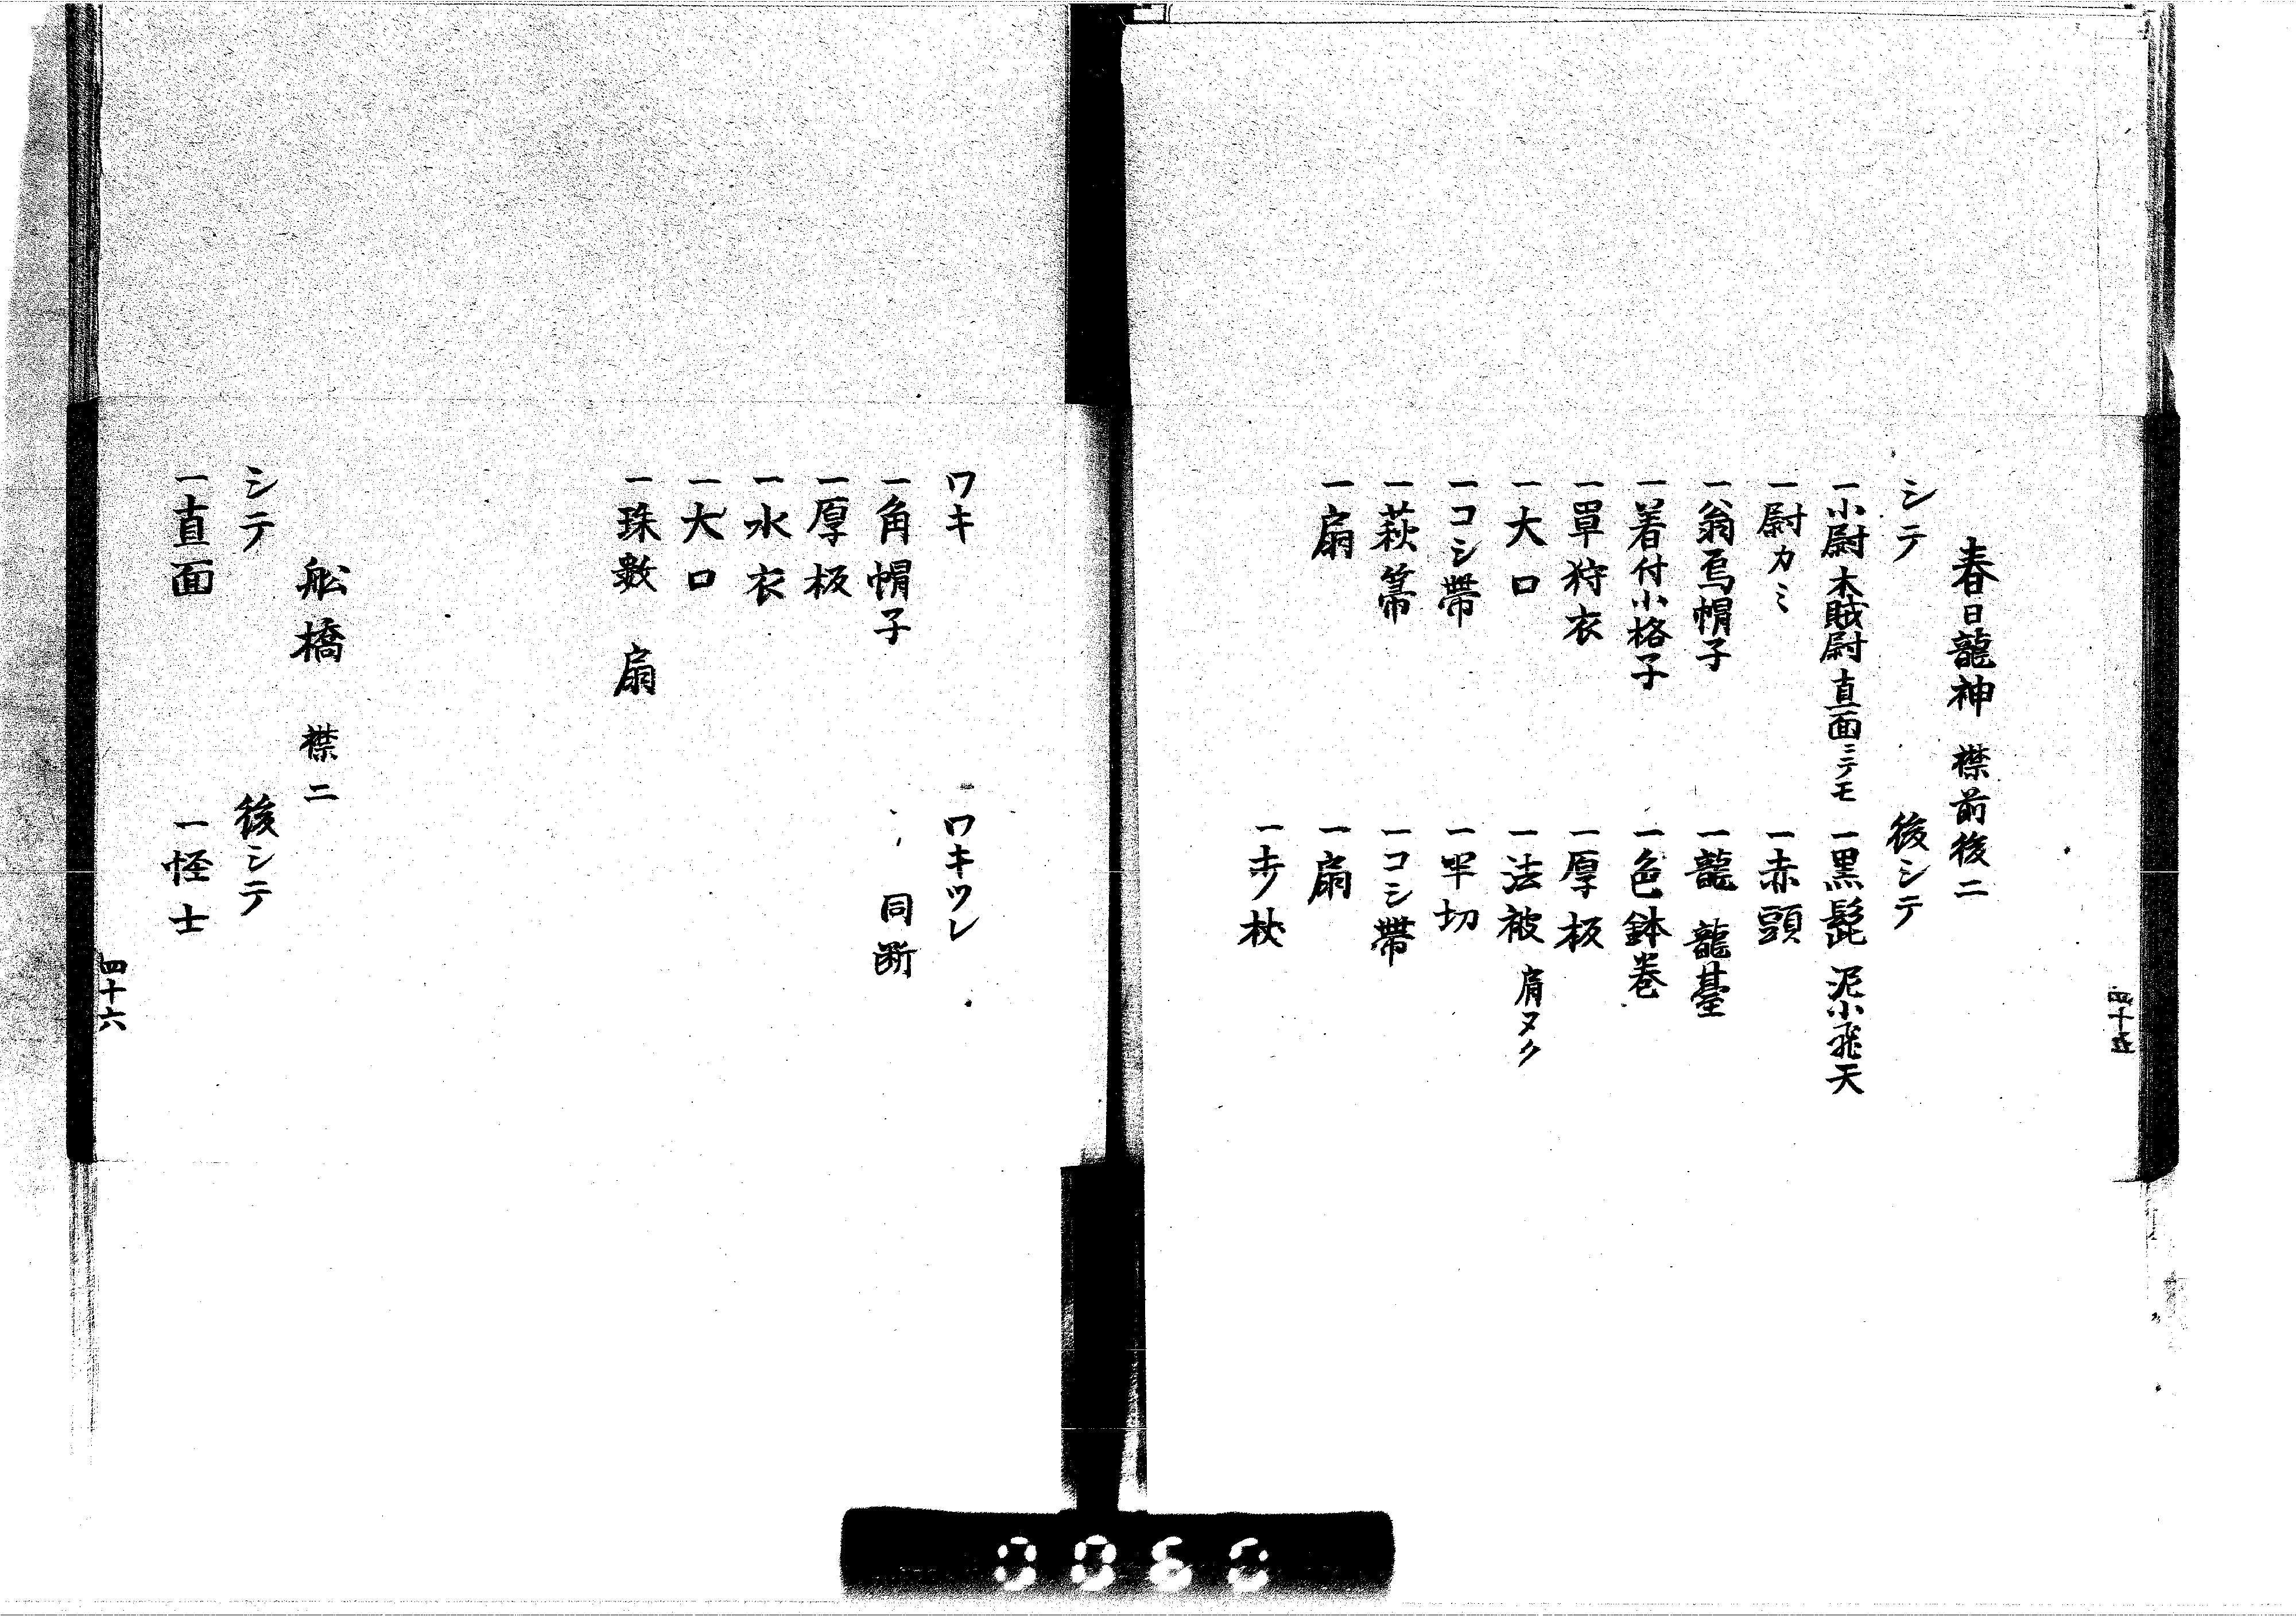 四十五
春日龍神　襟前後二
シテ　後シテ
一小尉　木賊尉　直面ニテモ　一黒髭　泥小飛天
一尉カミ　一赤頭
一翁烏帽子　一龍　龍臺
一着付小格子　一色鉢巻
一單狩衣　一厚板
一大口　一法被　肩ヌク
一コシ帶　一半切
一萩箒　一コシ帶
一扇　一扇
一赤ノ杖
ワキ　ワキツレ
一角帽子　同断
一厚板
一水衣
一大口
一珠數　扇
舩橋　襟二
シテ　後シテ
一直面　一怪士
四十六